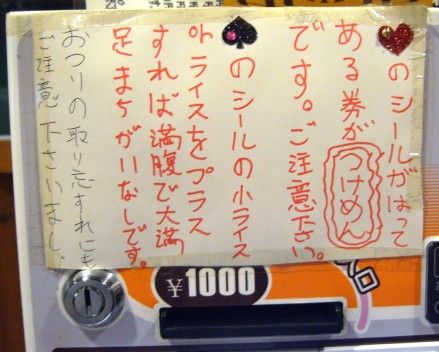 のシールがはって
ある券が つけめん
です。ご注意下さい。
のシールの小ライス
or ライスをプラス
すれば満腹で大満
足まちがいなしです。
おつりの取り忘れにも
ご注意下さいまし、
¥1000